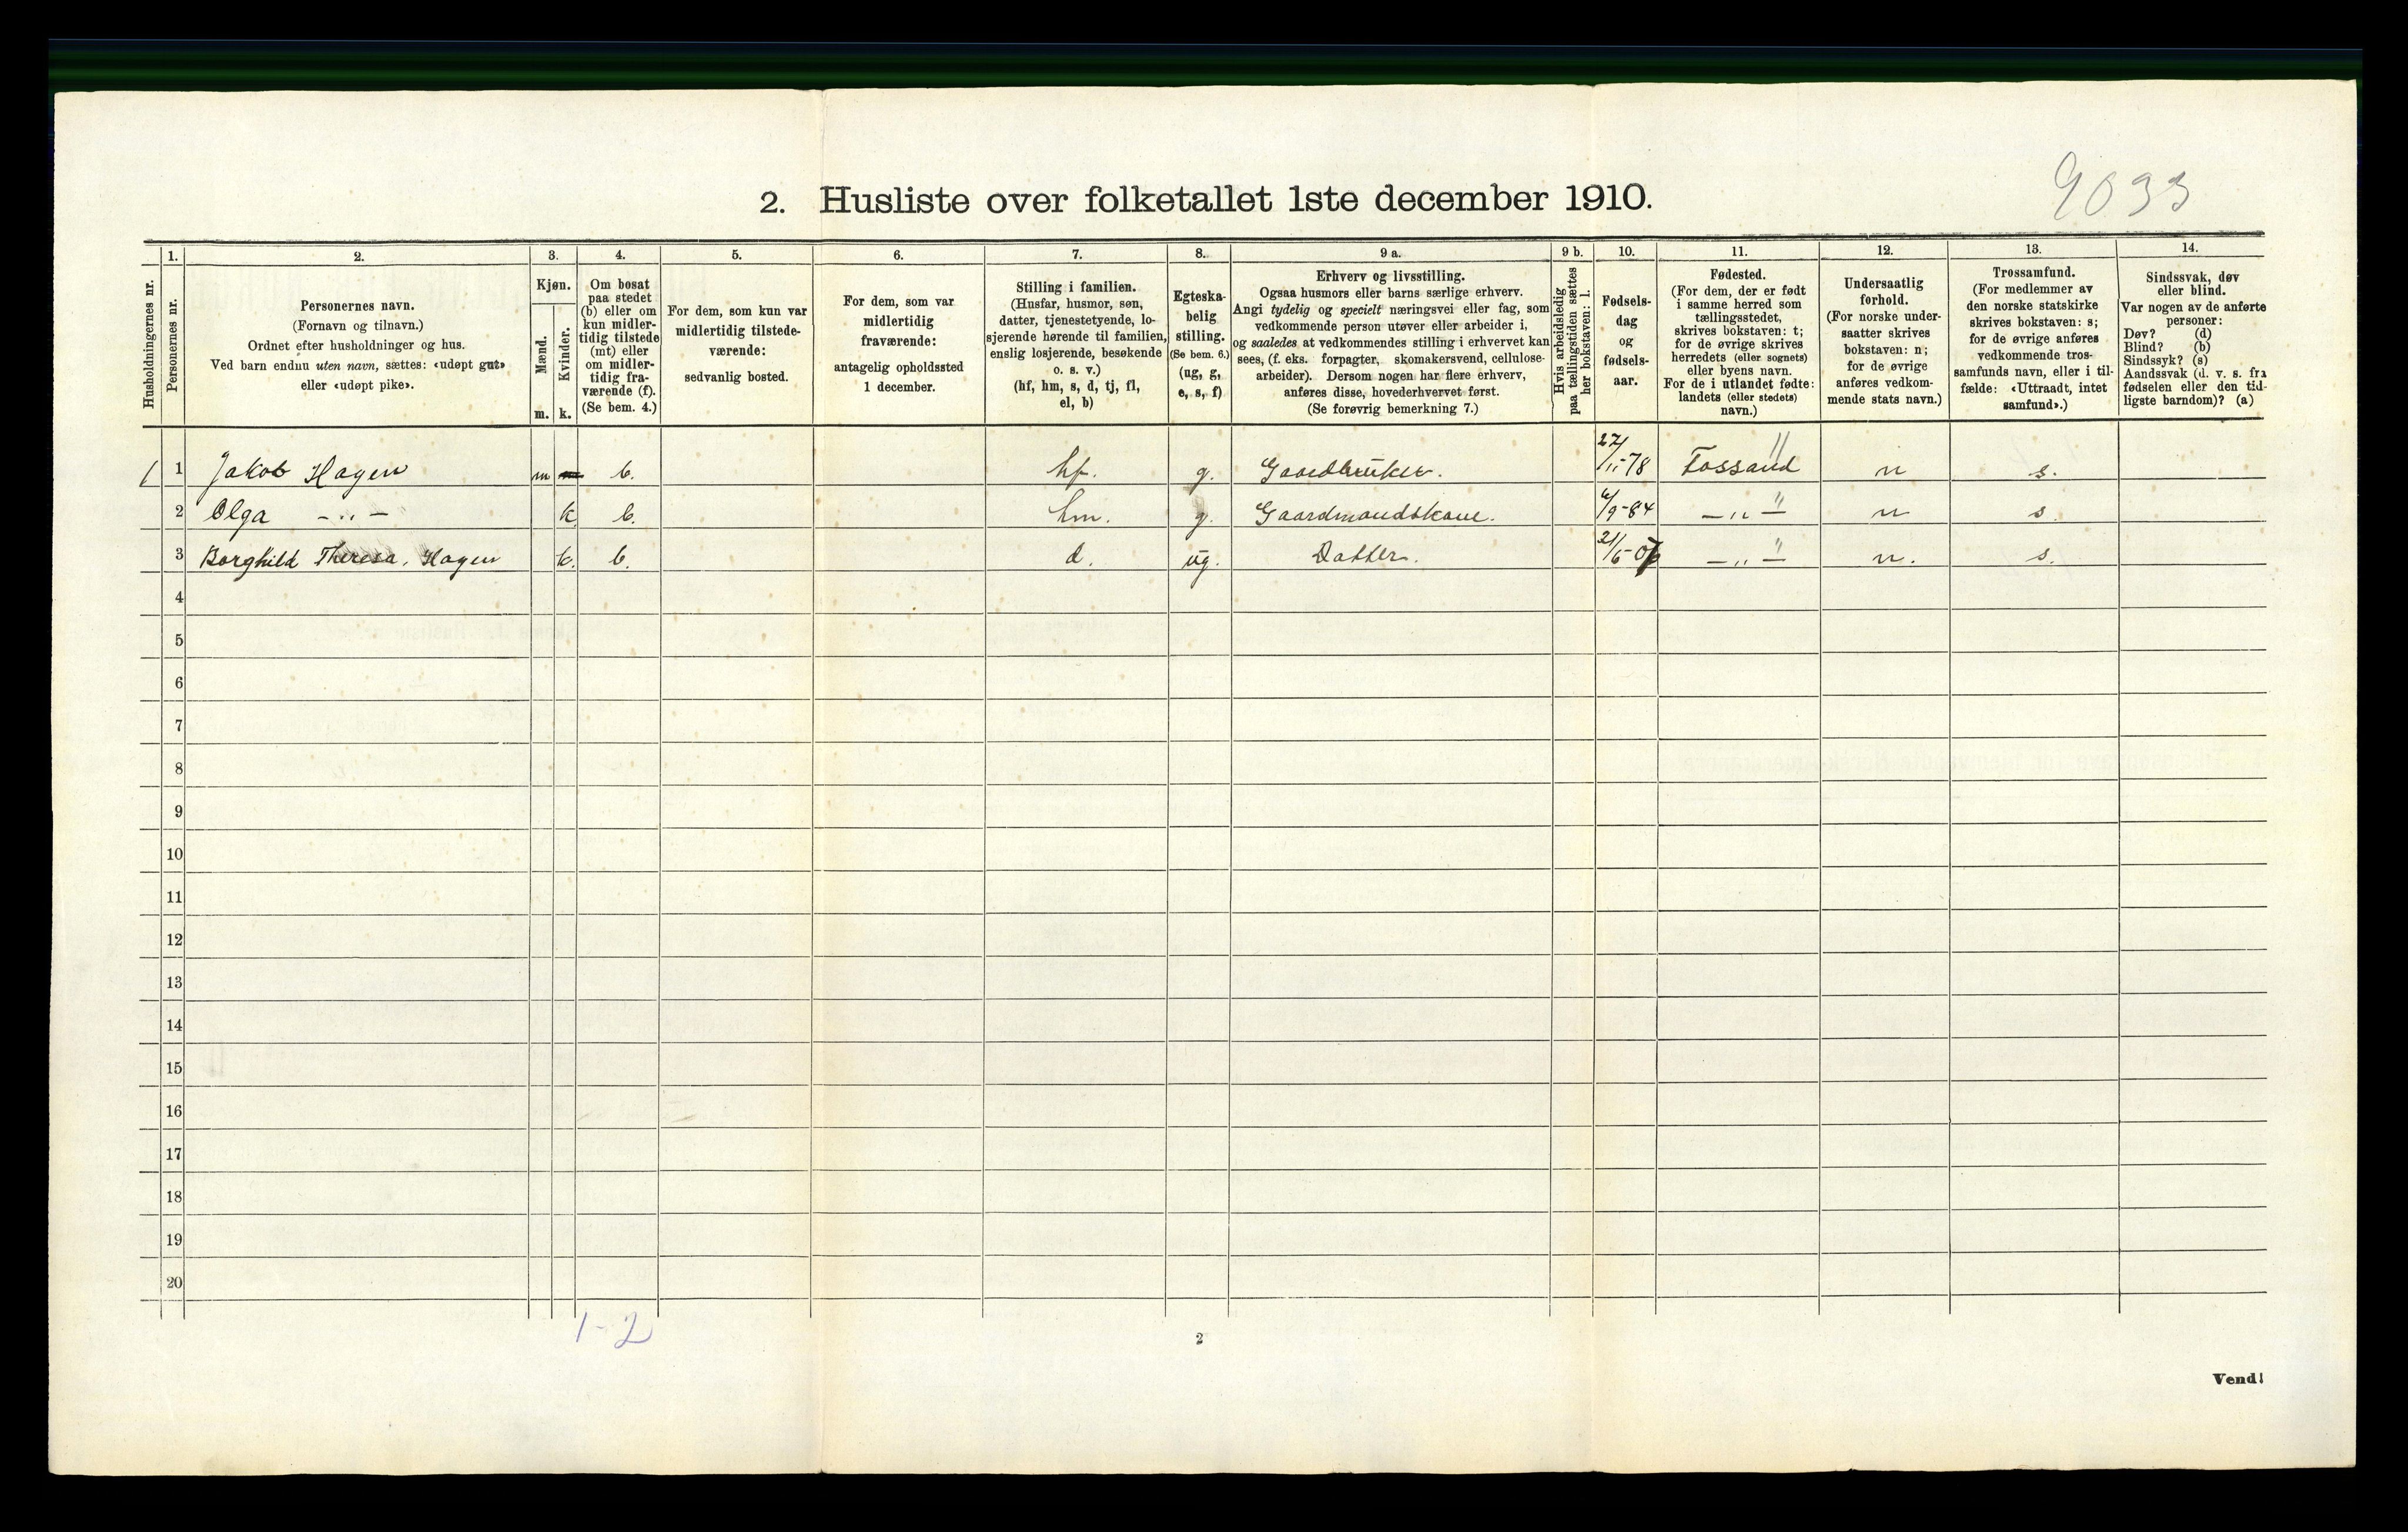 9033
2. Husliste over folketallet 1ste december 1910.
Husholdningernes nr.
1.
Personernes nr.
2.
Personernes navn.
(Fornavn og tilnavn.)
Ordnet efter husholdninger og hus.
Ved barn endnu uten navn, sættes: «udøpt gut»
eller «udøpt pike».
3.
Kjøn.
Mænd.
Kvinder.
m. k.
4.
Om bosat
paa stedet
(b) eller om
kun midler-
tidig tilstede
(mt) eller
om midler-
tidig fra-
værende (f).
(Se bem. 4.)
5.
For dem, som kun var
midlertidig tilstede-
værende:
sedvanlig bosted.
6.
For dem, som var
midlertidig
fraværende:
antagelig opholdssted
1 december.
7.
Stilling i familien.
(Husfar, husmor, søn,
datter, tjenestetyende, lo-
sjerende hørende til familien,
enslig losjerende, besøkende
o. s. v.)
(hf, hm, s, d, tj, fl,
el, b)
8.
Egteska-
belig
stilling.
(Se bem. 6.)
(ug, g,
e, s, f)
9 a.
Erhverv og livsstilling.
Ogsaa husmors eller barns særlige erhverv.
Angi tydelig og specielt næringsvei eller fag, som
vedkommende person utøver eller arbeider i,
og saaledes at vedkommendes stilling i erhvervet kan
sees, (f. eks. forpagter, skomakersvend, cellulose-
arbeider). Dersom nogen har flere erhverv,
anføres disse, hovederhvervet først.
(Se forøvrig bemerkning 7.)
9 b.
Hvis arbeidsledig
paa tællingstiden sættes
her bokstaven: l.
10.
Fødsels-
dag
og
fødsels-
aar.
11.
Fødested.
(For dem, der er født
i samme herred som
tællingsstedet,
skrives bokstaven: t;
for de øvrige skrives
herredets (eller sognets)
eller byens navn.
For de i utlandet fødte:
landets (eller stedets)
navn.)
12.
Undersaatlig
forhold.
(For norske under-
saatter skrives
bokstaven: n;
for de øvrige
anføres vedkom-
mende stats navn.)
13.
Trossamfund.
(For medlemmer av
den norske statskirke
skrives bokstaven: s;
for de øvrige anføres
vedkommende tros-
samfunds navn, eller i til-
fælde: «Uttraadt, intet
samfund».)
14.
Sindssvak, døv
eller blind.
Var nogen av de anførte
personer:
Døv? (d)
Blind? (b)
Sindssyk? (s)
Aandssvak (d. v. s. fra
fødselen eller den tid-
ligste barndom)? (a)
1 1 Jakob Hagen m b. hf. g. Gaardbruker. 27/11-78 Fossand " n s.
2 Olga -„- k b. hm. g. Gaardmandskone. 4/9-84 -„- " n s.
3 Borghild Theresa. Hagen k. b. d. ug. Datter. 21/6-07 -„- " n. s.
4
5
6
7
8
9
10
11
12
13
14
15
16
17
18
19
20
1-2
2
Vend!